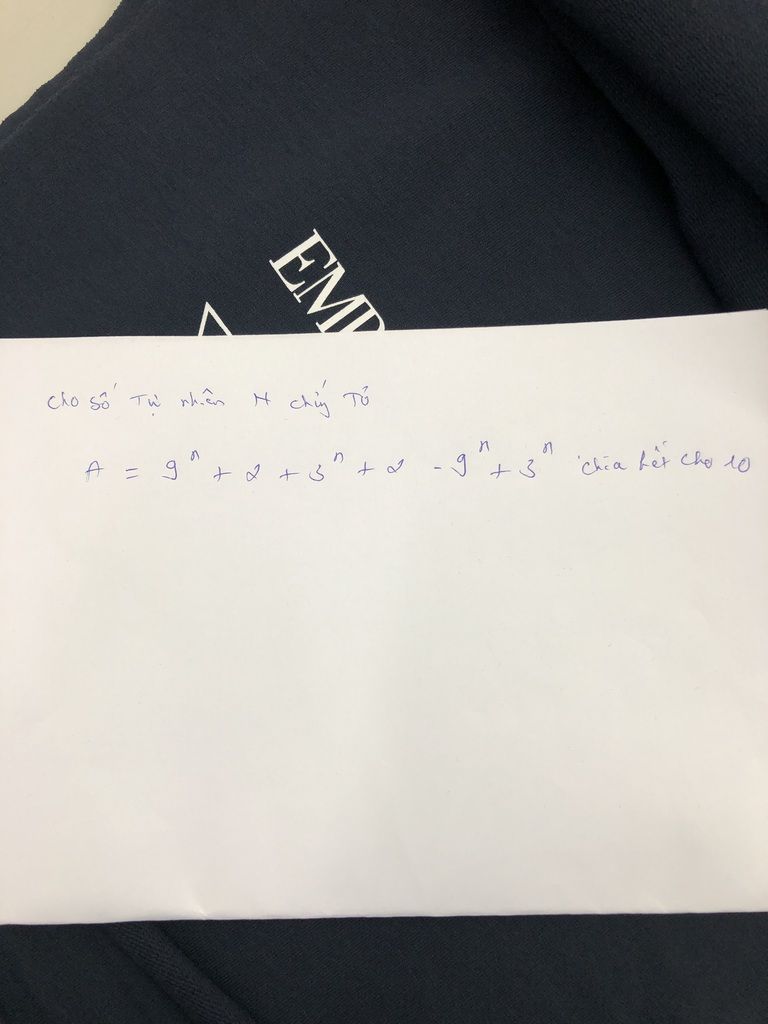 EMP
Cho số Tự nhiên N chứng Tỏ
A = 9ⁿ + 2 + 3ⁿ + 2 - 9ⁿ + 3ⁿ chia hết cho 10